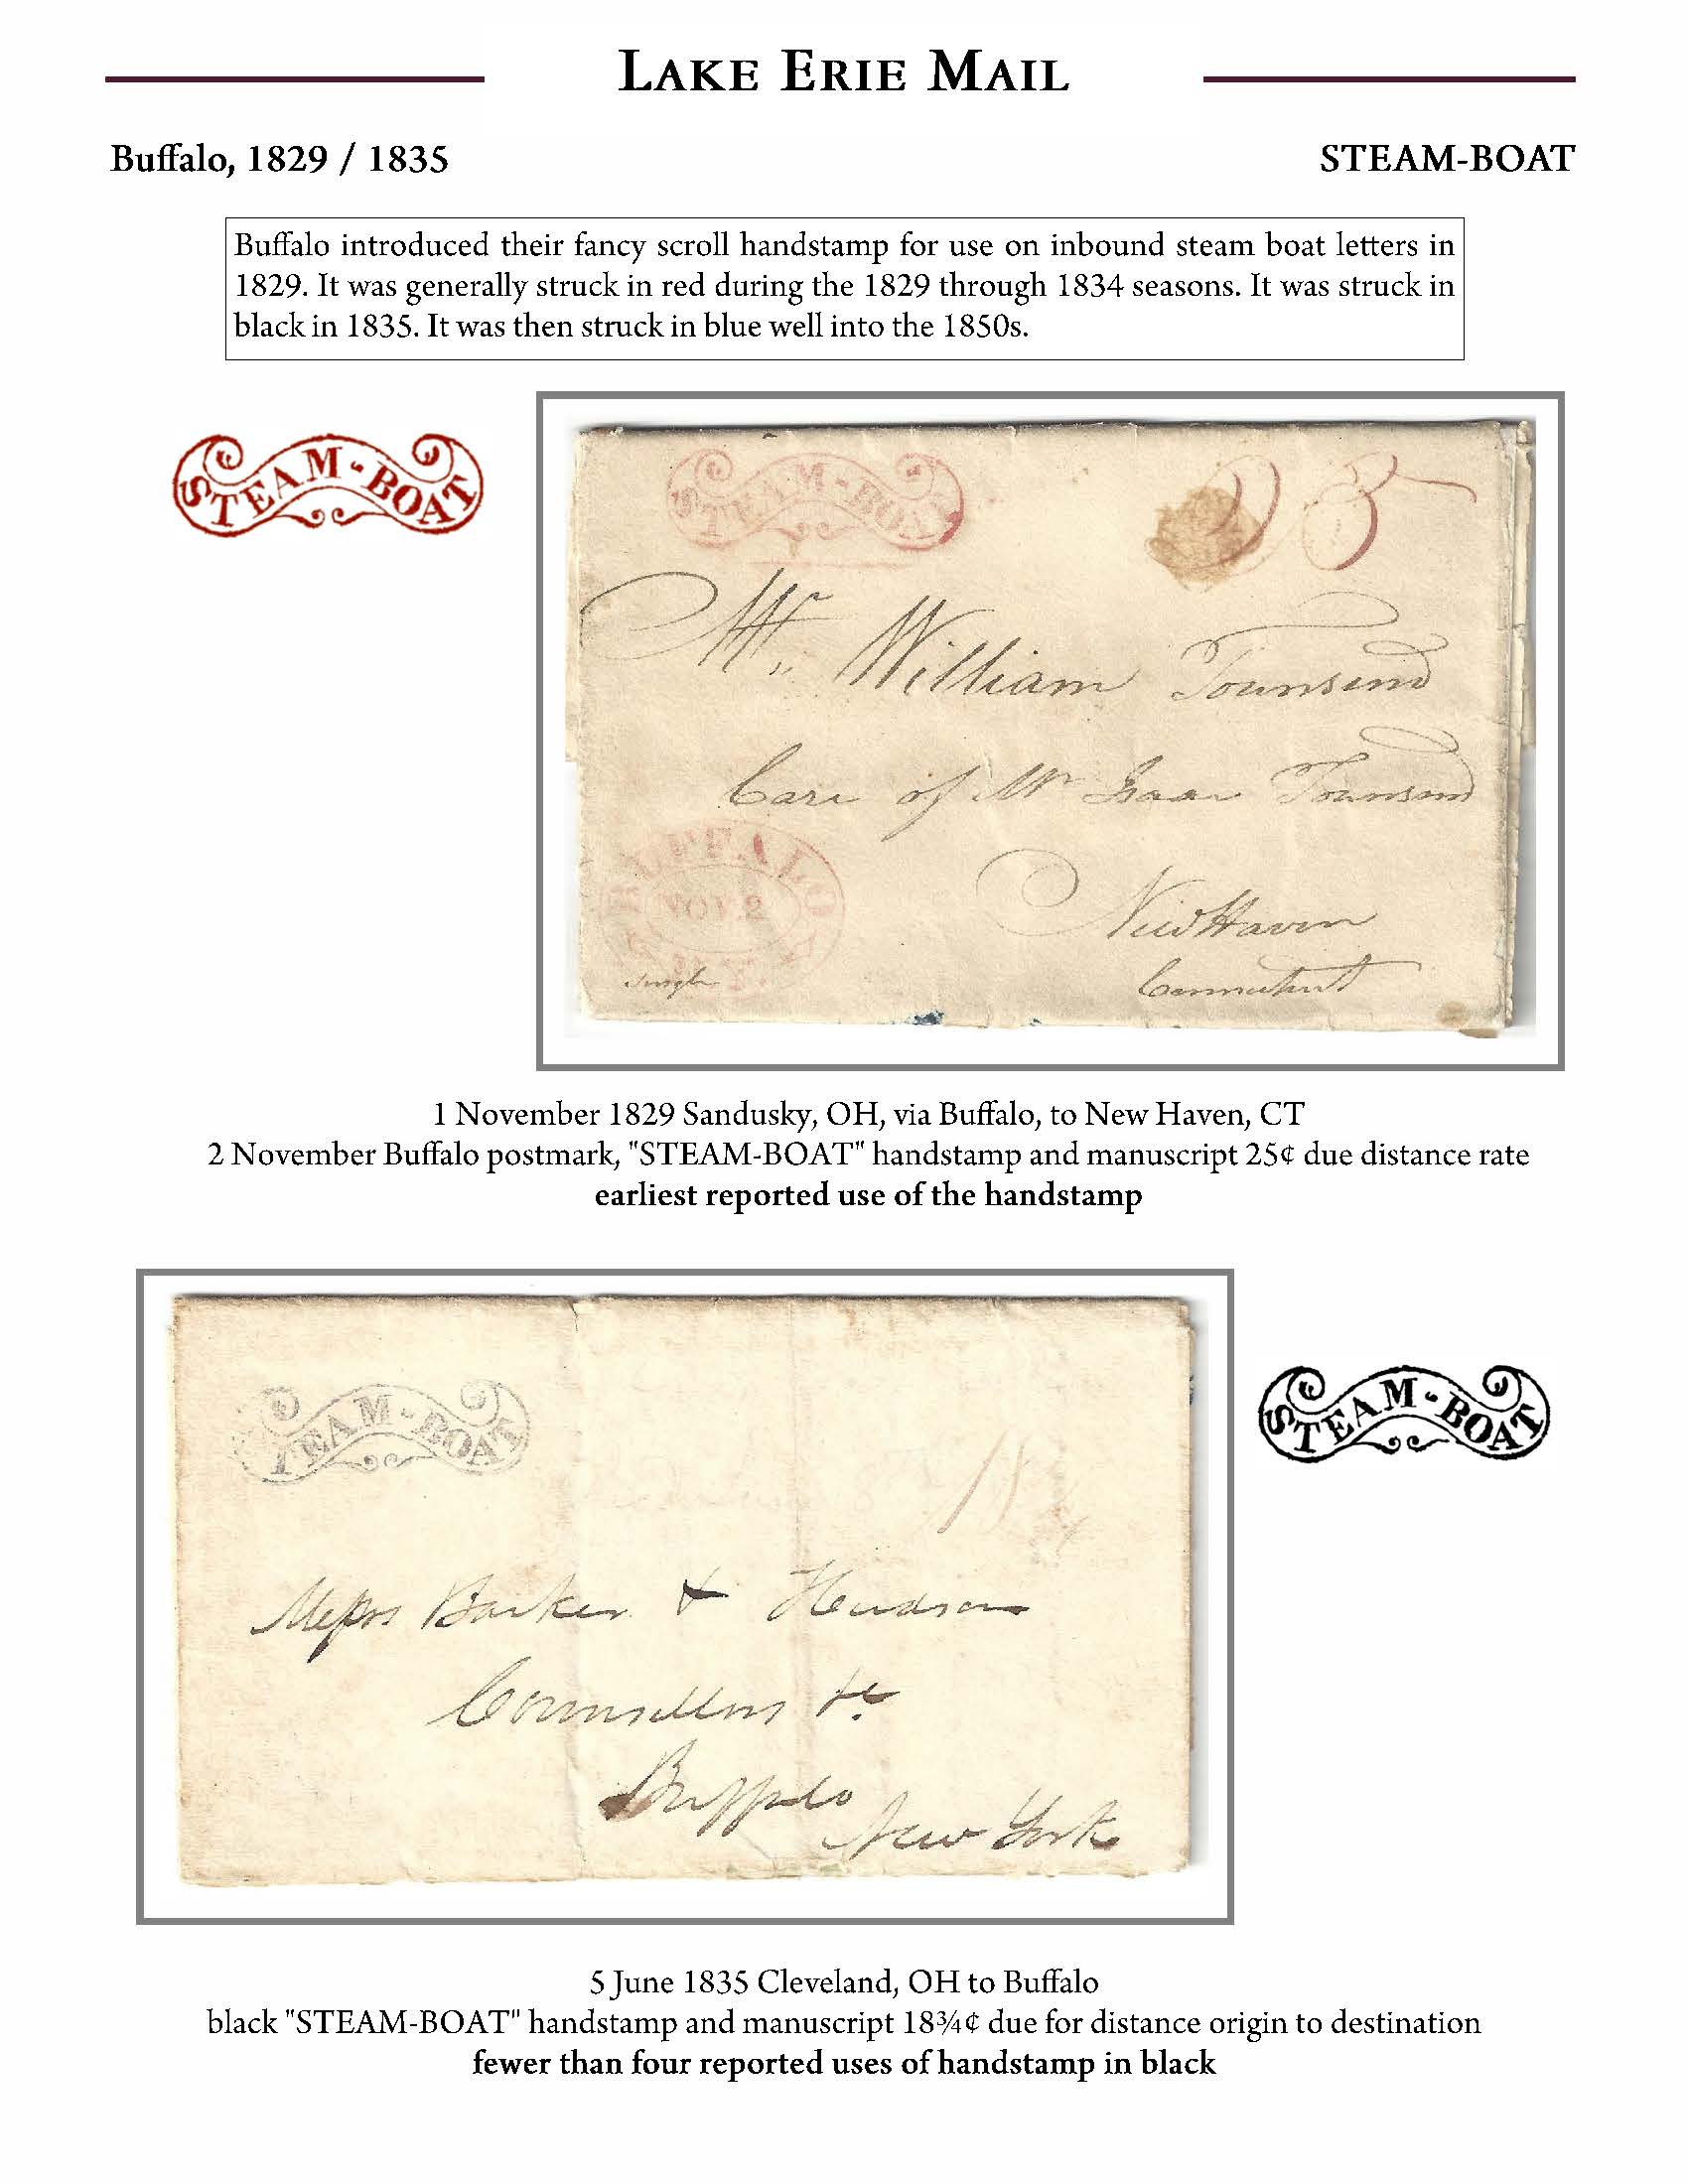 LAKE ERIE MAIL
Buffalo, 1829 / 1835
STEAM-BOAT
Buffalo introduced their fancy scroll handstamp for use on inbound steam boat letters in
1829. It was generally struck in red during the 1829 through 1834 seasons. It was struck in
black in 1835. It was then struck in blue well into the 1850s.
STEAM-BOAT
STEAM-BOAT
25
Mr. William Townsend
Care of Mr Isaac Townsend
BUFFALO
NOV. 2
N.Y.
New Haven
Single
Connecticut
1 November 1829 Sandusky, OH, via Buffalo, to New Haven, CT
2 November Buffalo postmark, "STEAM-BOAT" handstamp and manuscript 25¢ due distance rate
earliest reported use of the handstamp
STEAM-BOAT
STEAM-BOAT
18
Messrs Barker & Hudson
Counsellors &c.
Buffalo
New York
5 June 1835 Cleveland, OH to Buffalo
black "STEAM-BOAT" handstamp and manuscript 18¾¢ due for distance origin to destination
fewer than four reported uses of handstamp in black